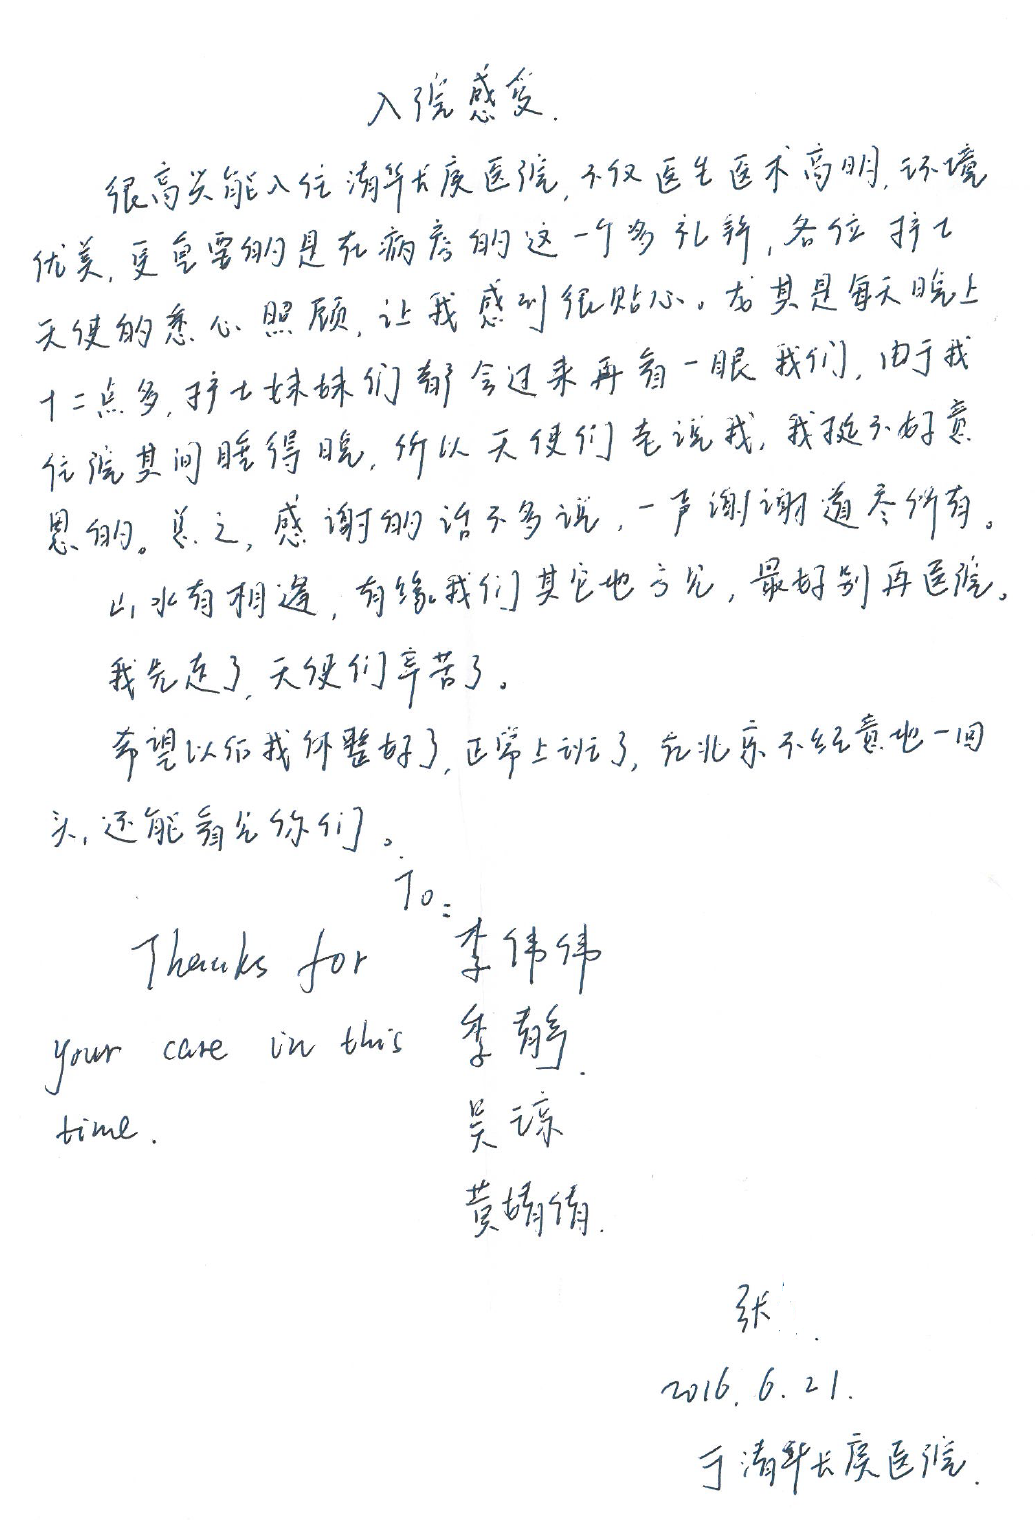 入院感受.
很高兴能入住清华长庚医院,不仅医生医术高明,环境
优美,更重要的是在病房的这一个多礼拜,各位护士
天使的悉心照顾,让我感到很贴心。尤其是每天晚上
十二点多,护士妹妹们都会过来再看一眼我们,由于我
住院其间睡得晚,所以天使们老说我,我挺不好意
思的。总之,感谢的话不多说,一声谢谢道尽所有。
山水有相逢,有缘我们其它地方见,最好别再医院。
我先走了,天使们辛苦了。
希望以后我休整好了,正常上班了,在北京不经意地一回
头,还能看见你们。
To:
Thanks for
your care in this
time.
李伟伟
季静.
吴琼
黄婧倩.
张
2016.6.21.
于清华长庚医院.